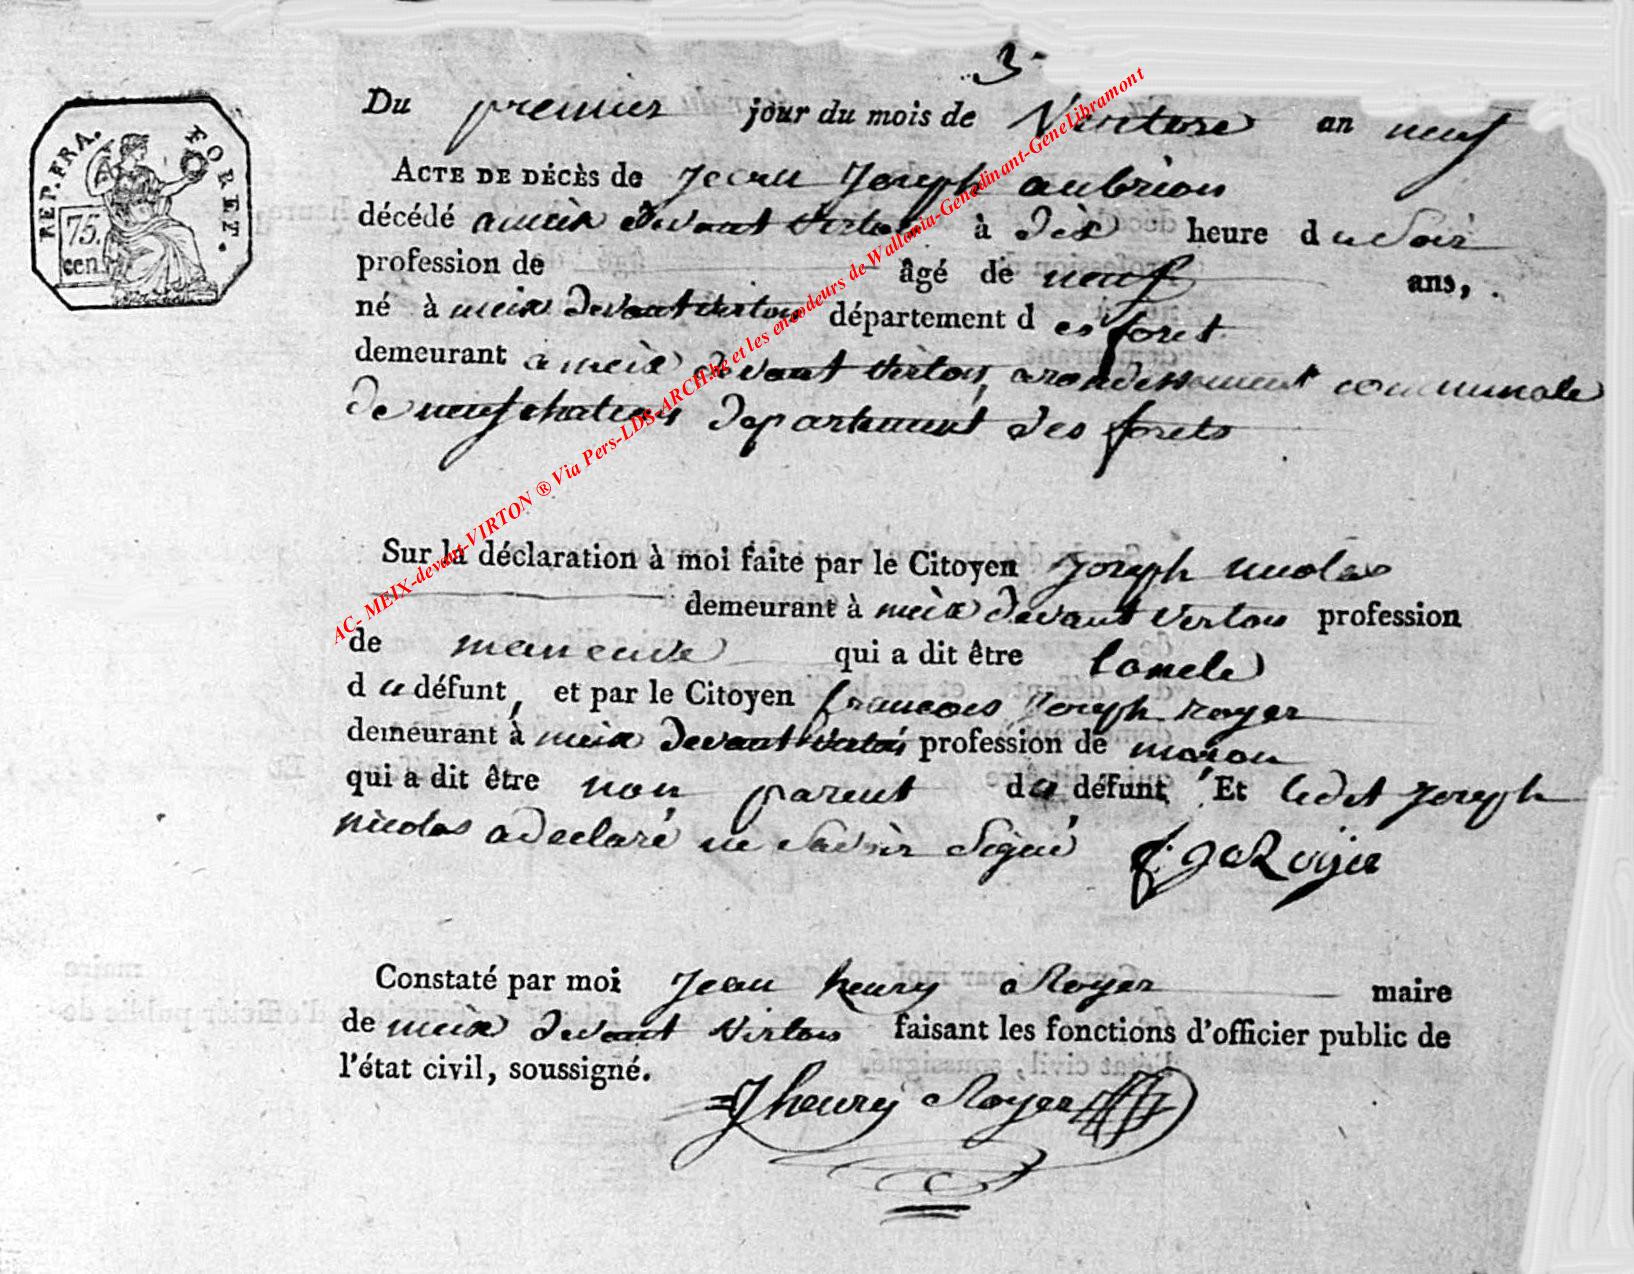 3
REP. FRA. FORET.
75.
cen.
Du premier jour du mois de Ventose an neuf
ACTE DE DÉCÈS de Jean Joseph aubrion
décédé a meix devant virton à dix heure du Soir
profession de âgé de neuf ans,
né à meix devant virton département des foret
demeurant a meix devant virton, arondissement communale
de neufchateau departement des forets
Sur la déclaration à moi faite par le Citoyen Joseph nicolas
demeurant à meix devant virton profession
de qui a dit être loncle
du défunt, et par le Citoyen francois Joseph royer
demeurant à meix devant virton profession de maron
qui a dit être non parent du défunt Et ledit Joseph
nicolas a declaré ne savoir signé f. J Royer
Constaté par moi Jean henry Royer maire
de meix devant virton faisant les fonctions d'officier public de
l'état civil, soussigné.
J henry Royer
AC- MEIX-devant-VIRTON ® Via Pers-LDS-ARCH.be et les encodeurs de Wallonia-Genedinant-GeneLibramont